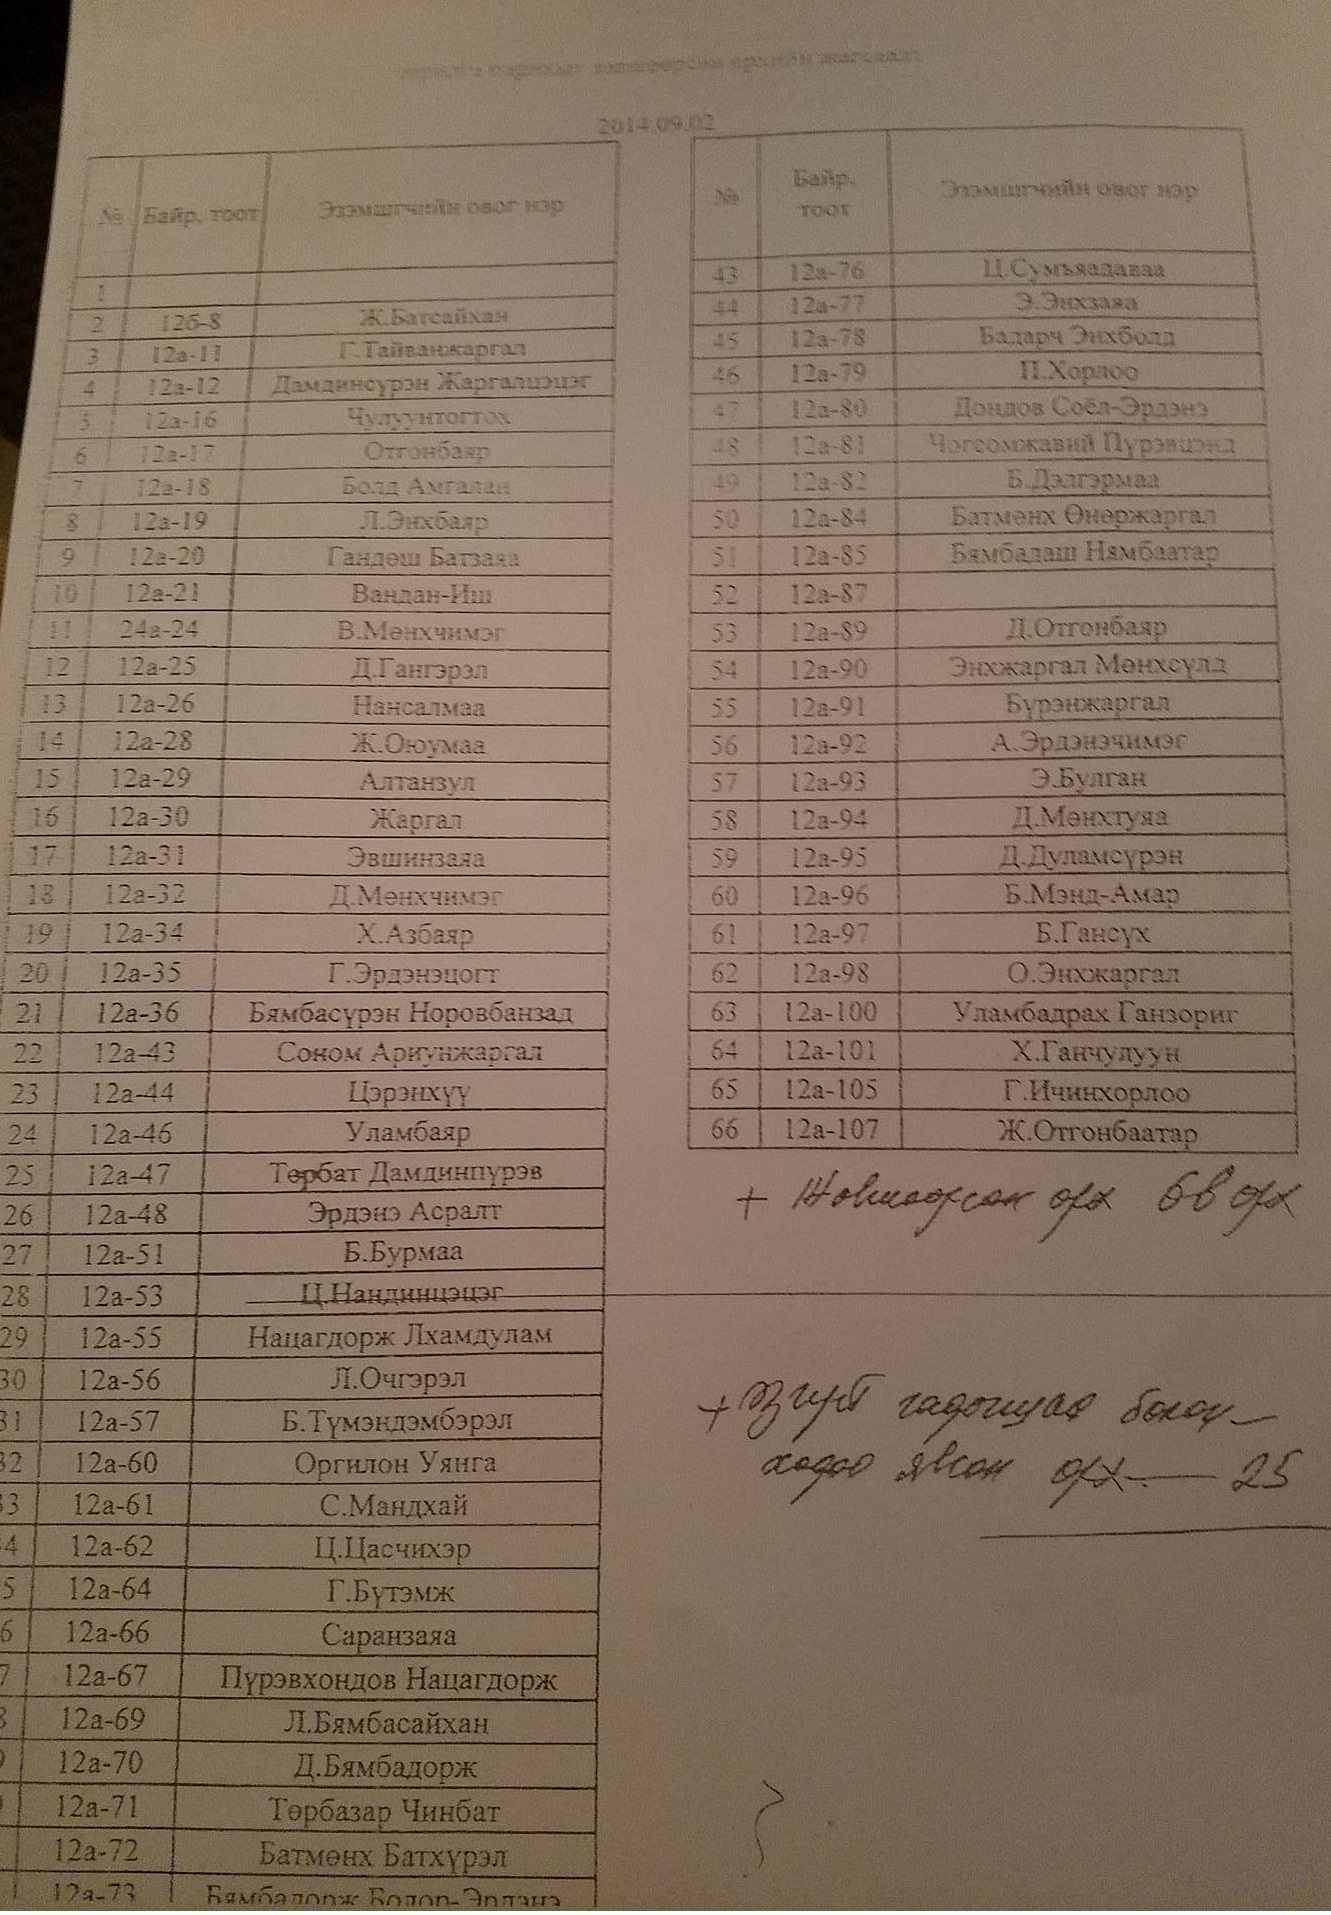 зөвшөөрсөн өрхийн жагсаалт
2014.09.02
№ Байр, тоот Эзэмшигчийн овог нэр
1
2 12б-8 Ж.Батсайхан
3 12а-11 Г.Тайванжаргал
4 12а-12 Дамдинсүрэн Жаргалцэцэг
5 12а-16 Чулуунтогтох
6 12а-17 Отгонбаяр
7 12а-18 Болд Амгалан
8 12а-19 Л.Энхбаяр
9 12а-20 Гандөш Батзаяа
10 12а-21 Вандан-Иш
11 24а-24 В.Мөнхчимэг
12 12а-25 Д.Гангэрэл
13 12а-26 Нансалмаа
14 12а-28 Ж.Оюумаа
15 12а-29 Алтанзул
16 12а-30 Жаргал
17 12а-31 Эвшинзаяа
18 12а-32 Д.Мөнхчимэг
19 12а-34 Х.Азбаяр
20 12а-35 Г.Эрдэнэцогт
21 12а-36 Бямбасүрэн Норовбанзад
22 12а-43 Соном Ариунжаргал
23 12а-44 Цэрэнхүү
24 12а-46 Уламбаяр
25 12а-47 Төрбат Дамдинпүрэв
26 12а-48 Эрдэнэ Асралт
27 12а-51 Б.Бурмаа
28 12а-53 Ц.Нандинцэцэг
29 12а-55 Нацагдорж Лхамдулам
30 12а-56 Л.Очгэрэл
31 12а-57 Б.Түмэндэмбэрэл
32 12а-60 Оргилон Уянга
33 12а-61 С.Мандхай
4 12а-62 Ц.Цасчихэр
5 12а-64 Г.Бүтэмж
6 12а-66 Саранзаяа
7 12а-67 Пүрэвхондов Нацагдорж
8 12а-69 Л.Бямбасайхан
9 12а-70 Д.Бямбадорж
12а-71 Төрбазар Чинбат
12а-72 Батмөнх Батхүрэл
12а-73 Бямбадорж Болор-Эрдэнэ
№ Байр, тоот Эзэмшигчийн овог нэр
43 12а-76 Ц.Сумъяадаваа
44 12а-77 Э.Энхзаяа
45 12а-78 Бадарч Энхболд
46 12а-79 П.Хорлоо
47 12а-80 Дондов Соёл-Эрдэнэ
48 12а-81 Чогсомжавий Пүрэвцэнд
49 12а-82 Б.Дэлгэрмаа
50 12а-84 Батмөнх Өнөржаргал
51 12а-85 Бямбадаш Нямбаатар
52 12а-87
53 12а-89 Д.Отгонбаяр
54 12а-90 Энхжаргал Мөнхсүлд
55 12а-91 Бүрэнжаргал
56 12а-92 А.Эрдэнэчимэг
57 12а-93 Э.Булган
58 12а-94 Д.Мөнхтуяа
59 12а-95 Д.Дуламсүрэн
60 12а-96 Б.Мэнд-Амар
61 12а-97 Б.Гансүх
62 12а-98 О.Энхжаргал
63 12а-100 Уламбадрах Ганзориг
64 12а-101 Х.Ганчулуун
65 12а-105 Г.Ичинхорлоо
66 12а-107 Ж.Отгонбаатар
+ өрх өрх
+ гадагшаа болон
хөдөө явсан өрх — 25